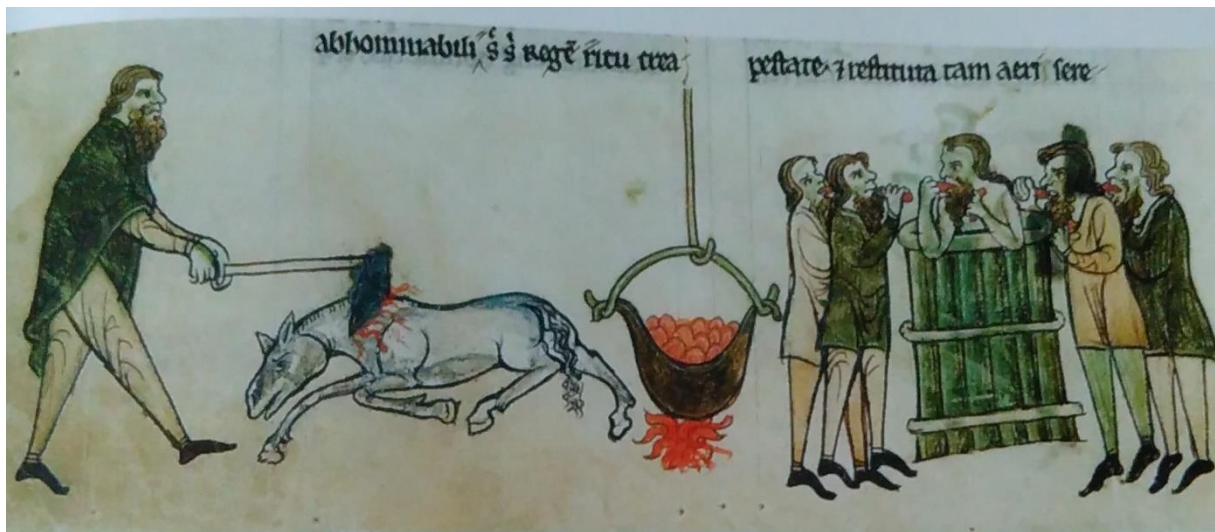 abhominabili ṡ ṡ Rogē ritu crea
pestate ⁊ restituta tam aeri sere